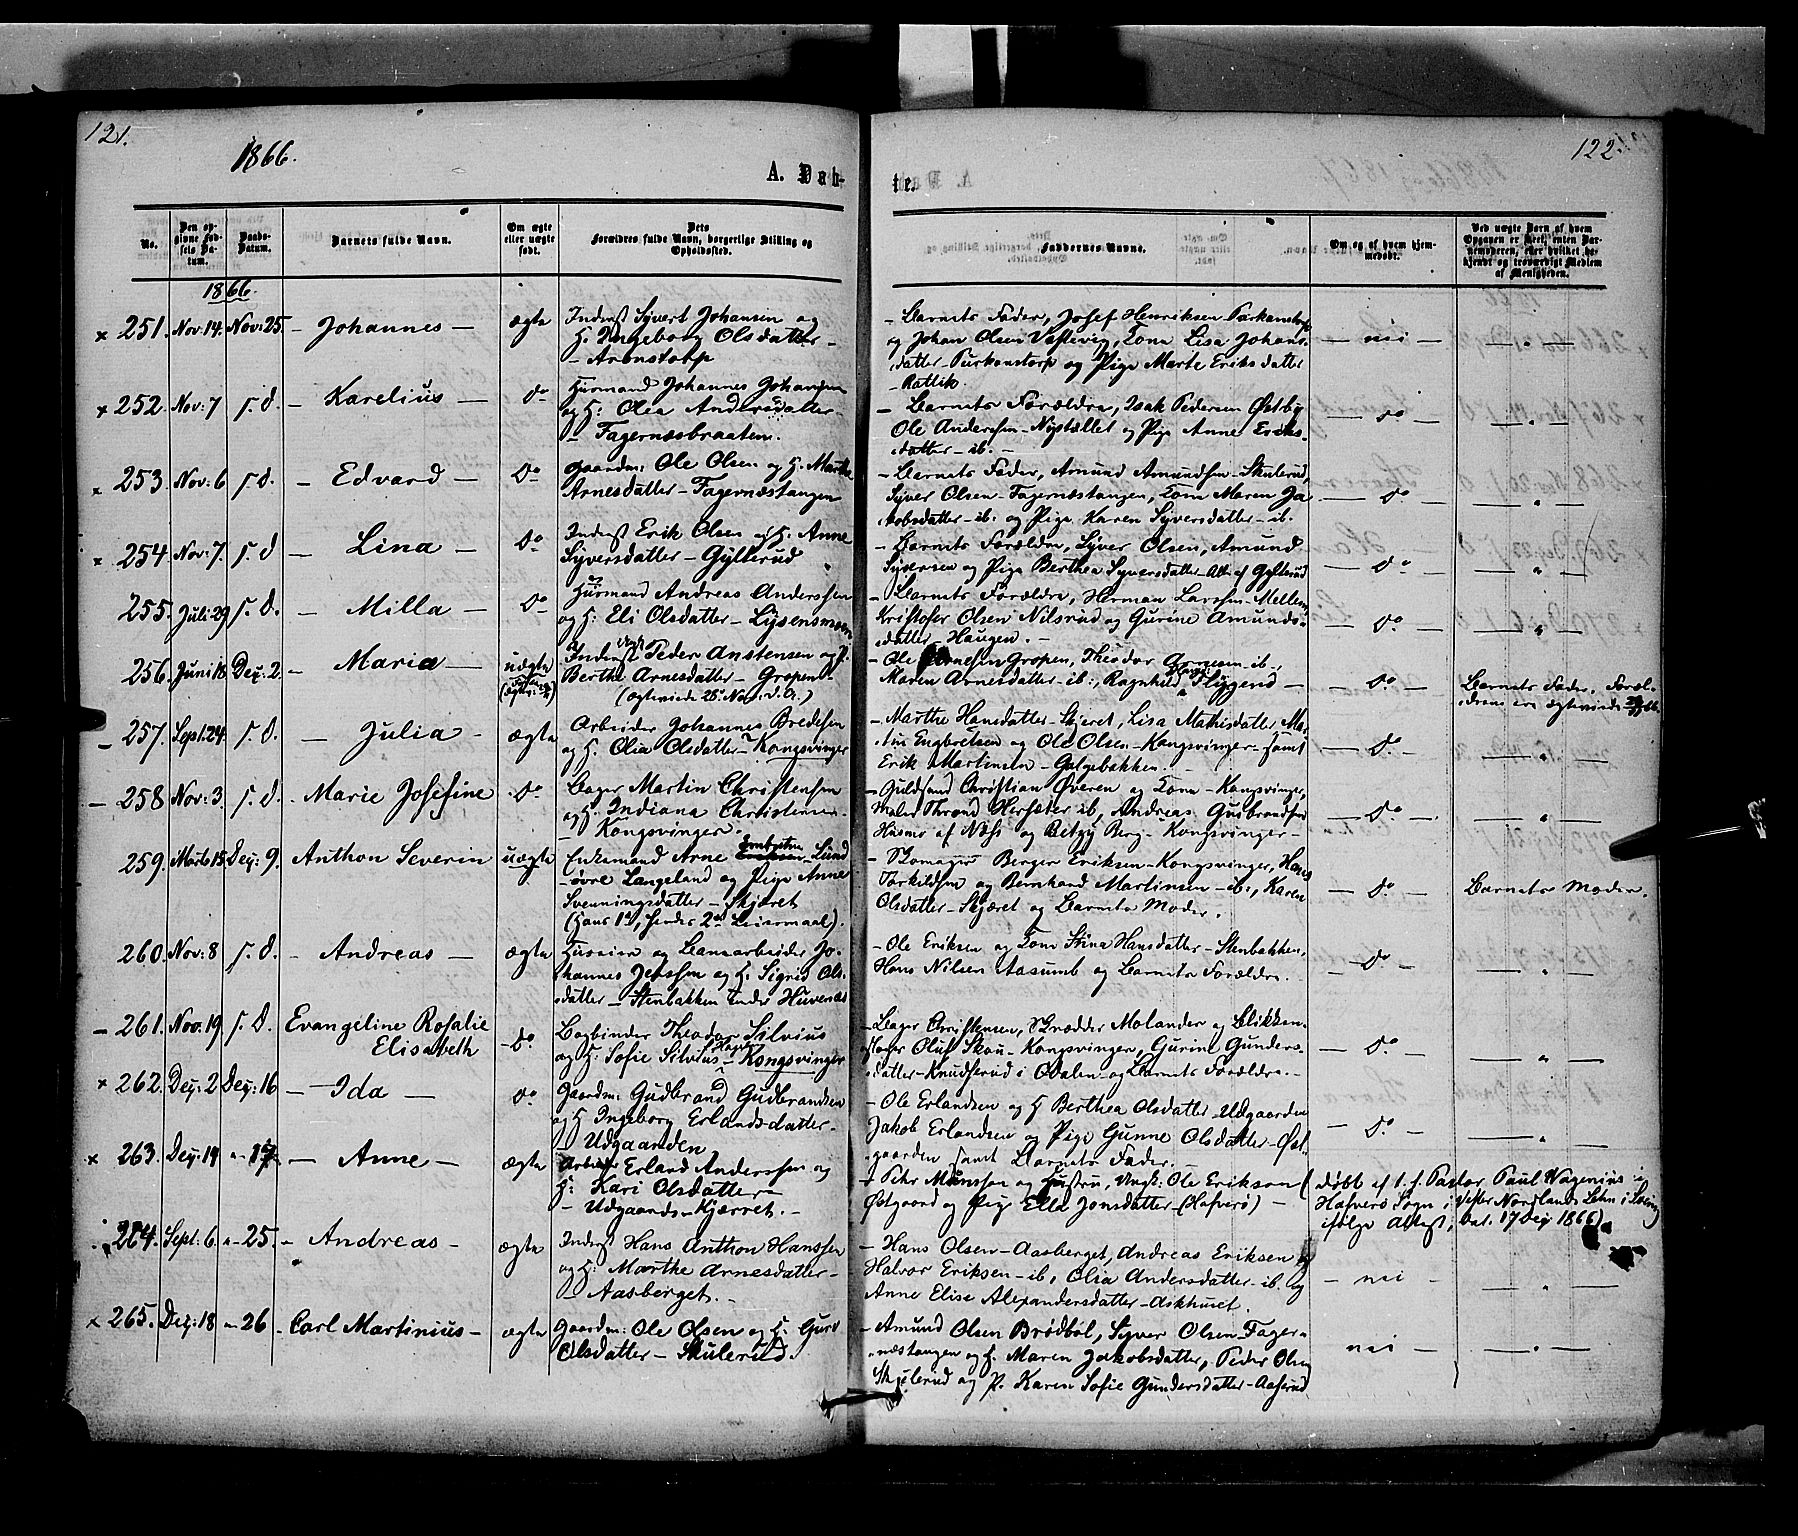 121.
1866.
A. Dab-
No.
Den op-
givne Fød-
sels Da-
tum.
Daabs-
Datum.
Barnets fulde Navn.
Om ægte
eller uægte
født.
Dets
Forældres fulde Navn, borgerlige Stilling og
Opholdssted.
1866.
× 251. Nov: 14. Nov: 25. – Johannes – ægte
Inderst Syvert Johansen og
H. Ingeborg Olsdatter –
– Aronstorp
× 252. Nov: 7 s. d. – Karelius – do
Huusmand Johannes Johansen
og H: Olea Andersdatter –
– Fagernæsbraaten.
× 253. Nov: 6 s. d. – Edvard – do
Gaardm: Ole Olsen og H. Marthe
Arnesdatter – Fagernæstangen
× 254. Nov: 7. s. d – Lina – do
Inderst Erik Olsen og H. Anne
Syversdatter – Gyllerud
255. Juli 29 s. d. – Milla – do
Huusmand Andreas Anderssen
og H: Eli Olsdatter – Lysensmoen
256. Juni 18 Dez: 2. – Maria – uægte
Inderst Peder Anstensen og P.
Berthe Arnesdatter – Gropen –
(ægteviede 26 Nov. d. A.)
– 257. Sept: 24. s. d. – Julia – ægte
Arbeider Johannes Bredesen
og H. Olia Olsdatter – Kongsvinger
– 258 Nov: 3. s. d. – Marie Josefine do
Bager Martin Christensen
og H. Indiana Christensen –
– Kongsvinger.
259. Marts 15. Dez: 9. Anthon Severin uægte
Enkemand Arne Lund
øvre Langeland og Pige Anne
Svenningsdatter – Skjæret
(Hans 1ste, hendes 2det Leiermaal).
260. Nov: 8 s. d. – Andreas – ægte
Huseier og Banearbeider Jo-
hannes Jenssen og H. Sigrid Ols-
datter – Stenbakken under Huvenæs
– 261. Nov: 19 s. d. Evangeline Rosalie
Elisabeth – do
Bogbinder Theodor Silvius
og H: Sofie Silvius – Kongsvinger
× 262. Dez: 2 Dez: 16 – Ida – do
Gaardm: Gudbrand Gudbrandsen
og H. Ingeborg Erlandsdatter –
– Udgaarden
× 263. Dez: 14 – 17 – Anne – ægte
Arbeider Erland Anderssen og
H: Kari Olsdatter –
– Udgaards-Kjærret. –
264. Sept: 6. – 25. – Andreas – ægte
Inderst Hans Anthon Hanssen
og H: Marthe Arnesdatter –
– Aasberget. –
× 265. Dez: 18 – 26 – Carl Martinius – ægte
Gaardm: Ole Olsen og H. Guri
Olsdatter – Skulerud.
122.
te.
Faddernes Navne.
Om og af hvem hjem-
medøbt.
Ved uægte Børn af hvem
Opgaven er skeet, enten Bar-
nemoderen, eller hvilket be-
kjendt og troværdigt Medlem
af Menigheden.
– Barnets Fader, Josef Henriksen Purkanstorp
og Johan Olsen Vestevig, Kone Lisa Johans-
datter – Purkanstorp og Pige Marte Eriksdatter
– Ratlik. – nei –
– Barnets Forældre, Isak Pedersen Østby
Ole Anderssen – Nystællet og Pige Anne Eriks-
datter – ib. – – do
– Barnets Fader, Amund Amundsen – Skulerud,
Syver Olsen – Fagernæstangen, Kone Maren Ja-
kobsdatter – ib: og Pige Karen Syversdatter – ib. – do –
– Barnets Forældre, Syver Olsen, Amund
Syversen og Pige Berthea Syversdatter – Alle af Gyllerud – do –
– Barnets Forældre, Herman Larssen – Mellem,
Kristofer Olsen Nilsrud og Gurine Amunds-
datter – Haugen. – – do –
– Ole Arnesen Gropen, Theodor Arnesen – ib.,
Maren Arnesdatter – ib:, Ragnhild Flygend – – do – Barnets Fader. Foræl-
drene ere ægteviede
– Marthe Hansdatter – Skjeret, Lisa Mathisdatter, Mar-
tin Engbretsen og Ole Olsen – Kongsvinger – samt
Erik Martinsen – Galgebakken. – – do –
– Guldsmed Christian Øveren og Kone – Kongsvinger,
Maler Thrond Hersæter ib, Andreas Gulbrandsen
Husmo af Næs og Betzy Berg – Kongsvinger – – do –
– Skomager Berger Eriksen – Kongsvinger, Hans
Torkildsen og Bernhard Martinsen – ib., Karen
Olsdatter – Skjæret og Barnets Moder. – do – Barnets Moder.
– Ole Eriksen og Kone Stina Hansdatter – Stenbakken,
Hans Nilsen Aasumb og Barnets Forældre. – do –
– Bager Christensen, Skrædder Molander og Blikken-
slager Oluf Skou – Kongsvinger, Gurine Gunders-
datter – Knudserud i Odalen – og Barnets Forældre. – – do –
– Ole Erlandsen og H Berthea Olsdatter Udgaarden
Jakob Erlandsen og Pige Gunne Olsdatter – Øst-
gaarden samt Barnets Fader. – do –
– Pehr Månsson og Hustru, Ungk: Ole Erikson
Østgaard og Pige Ella Jonsdatter – (Hafverö) – (døbt af t. f. Pastor Paul Wagenius i
Hafverö Sogn i Vester Nordlands Lehn i Sverig
ifølge Attest, dat. 17 Dez 1866)
– Hans Olsen – Aasberget, Andreas Eriksen og
Halvor Eriksen – ib, Olia Andersdatter – ib. og
Anne Elise Alexandersdatter – Askhuset. – nei –
– Amund Olsen Brødbøl, Syver Olsen – Fager-
næstangen og H. Maren Jakobsdatter, Peder Olsen
Skjulerud og P. Karen Sofie Gundersdatter – Aaserud nei –